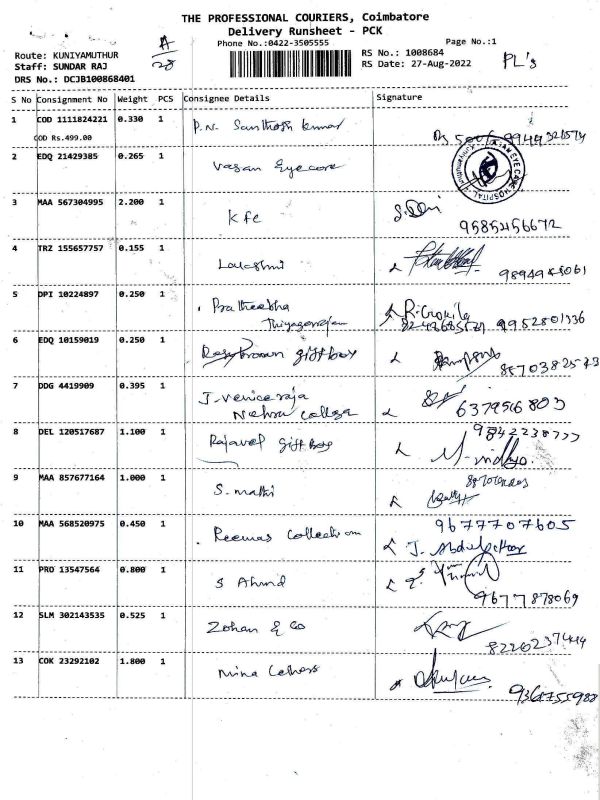 THE PROFESSIONAL COURIERS, Coimbatore
Delivery Runsheet - PCK
Phone No.:0422-3505555 Page No.:1
Route: KUNIYAMUTHUR A/28 RS No.: 1008684 PL's
Staff: SUNDAR RAJ RS Date: 27-Aug-2022
DRS No.: DCJB100868401
S No Consignment No Weight PCS Consignee Details Signature
1 COD 1111824221 0.330 1 P.N. Santhosh kumar
COD Rs.499.00
2 EDQ 21429385 0.265 1 Vasan Eyecare
VASAN EYE CARE HOSPITAL
3 MAA 567304995 2.200 1 Kfc
9585456672
4 TRZ 155657757 0.155 1 Lalakshmi
5 DPI 10224897 0.250 1 Pratheebha R. Gokila
Thiyagarajan 9952801336
6 EDQ 10159019 0.250 1 gift boy
7 DDG 4419909 0.395 1 J. Veniceraja
Nehru College
8 DEL 120517687 1.100 1 Rajavel gift Boy M. vidhya
9 MAA 857677164 1.000 1 S. mathi
10 MAA 568520975 0.450 1 Reemas Collection 9677707605
11 PRO 13547564 0.800 1 S Ahmid
9677878069
12 SLM 302143535 0.525 1 Zohan & Co
13 COK 23292102 1.800 1 Mina